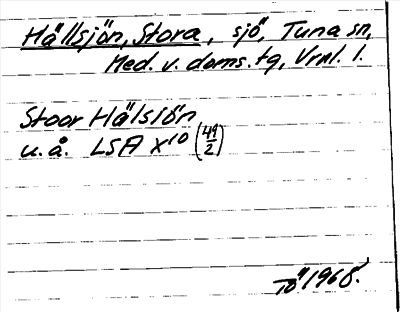 Hällsjön, Stora, sjö, Tuna sn,
Med. v. doms. tg, Vrml. l.
Stoor Hälsiön
u. å. LSA X10 (49/2)
1968.